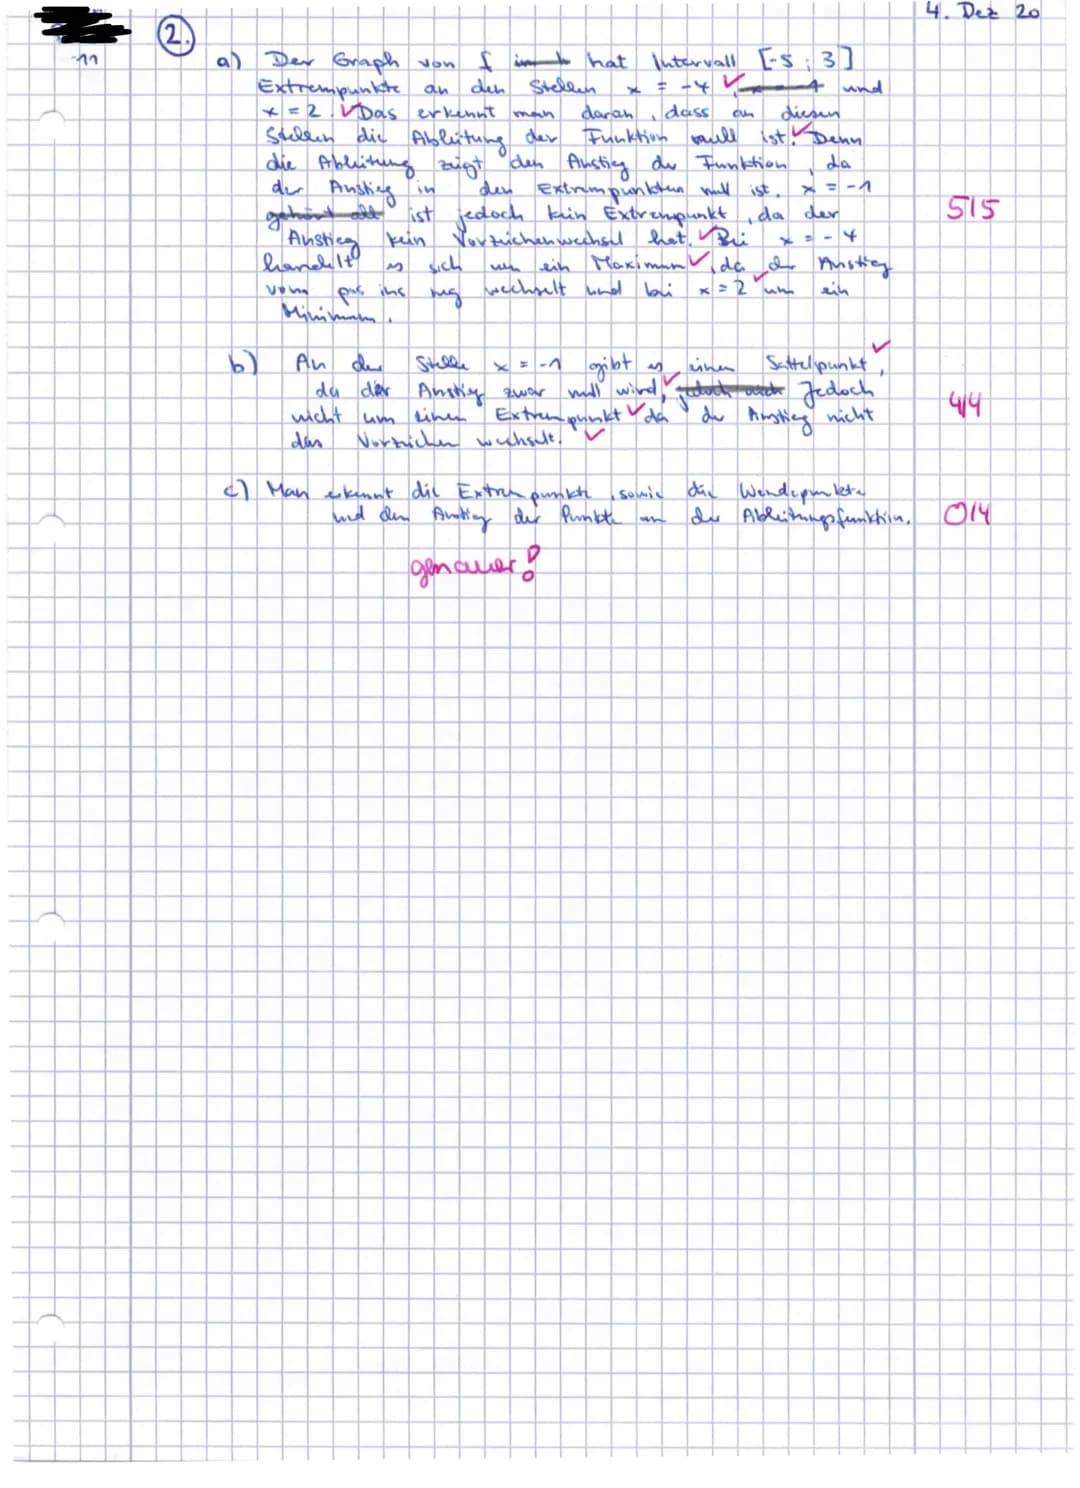 4. Dez 20
-11
2.
a) Der Graph von f hat Intervall [-5 ; 3]
Extrempunkte an den Stellen x = -4 ✓ und
x = 2. ✓ Das erkennt man daran, dass an diesen
Stellen die Ableitung der Funktion null ist. ✓ Denn
die Ableitung zeigt den Anstieg der Funktion, da
der Anstieg in den Extrempunkten null ist. x = -1
ist jedoch kein Extrempunkt, da der 5/5
Anstieg kein Vorzeichenwechsel hat. ✓ Bei x = -4
handelt es sich um ein Maximum ✓, da der Anstieg
vom pos ins neg wechselt ✓ und bei x = 2 um ein
Minimum.
b) An der Stelle x = -1 gibt es einen Sattelpunkt, ✓
da der Anstieg zwar null wird, ✓ Jedoch
nicht um einen Extrempunkt ✓ da der Anstieg nicht 4/4
das Vorzeichen wechselt. ✓
c) Man erkennt die Extrempunkte, sowie die Wendepunkte
und den Anstieg der Punkte an der Ableitungsfunktion. 0/4
genauer!